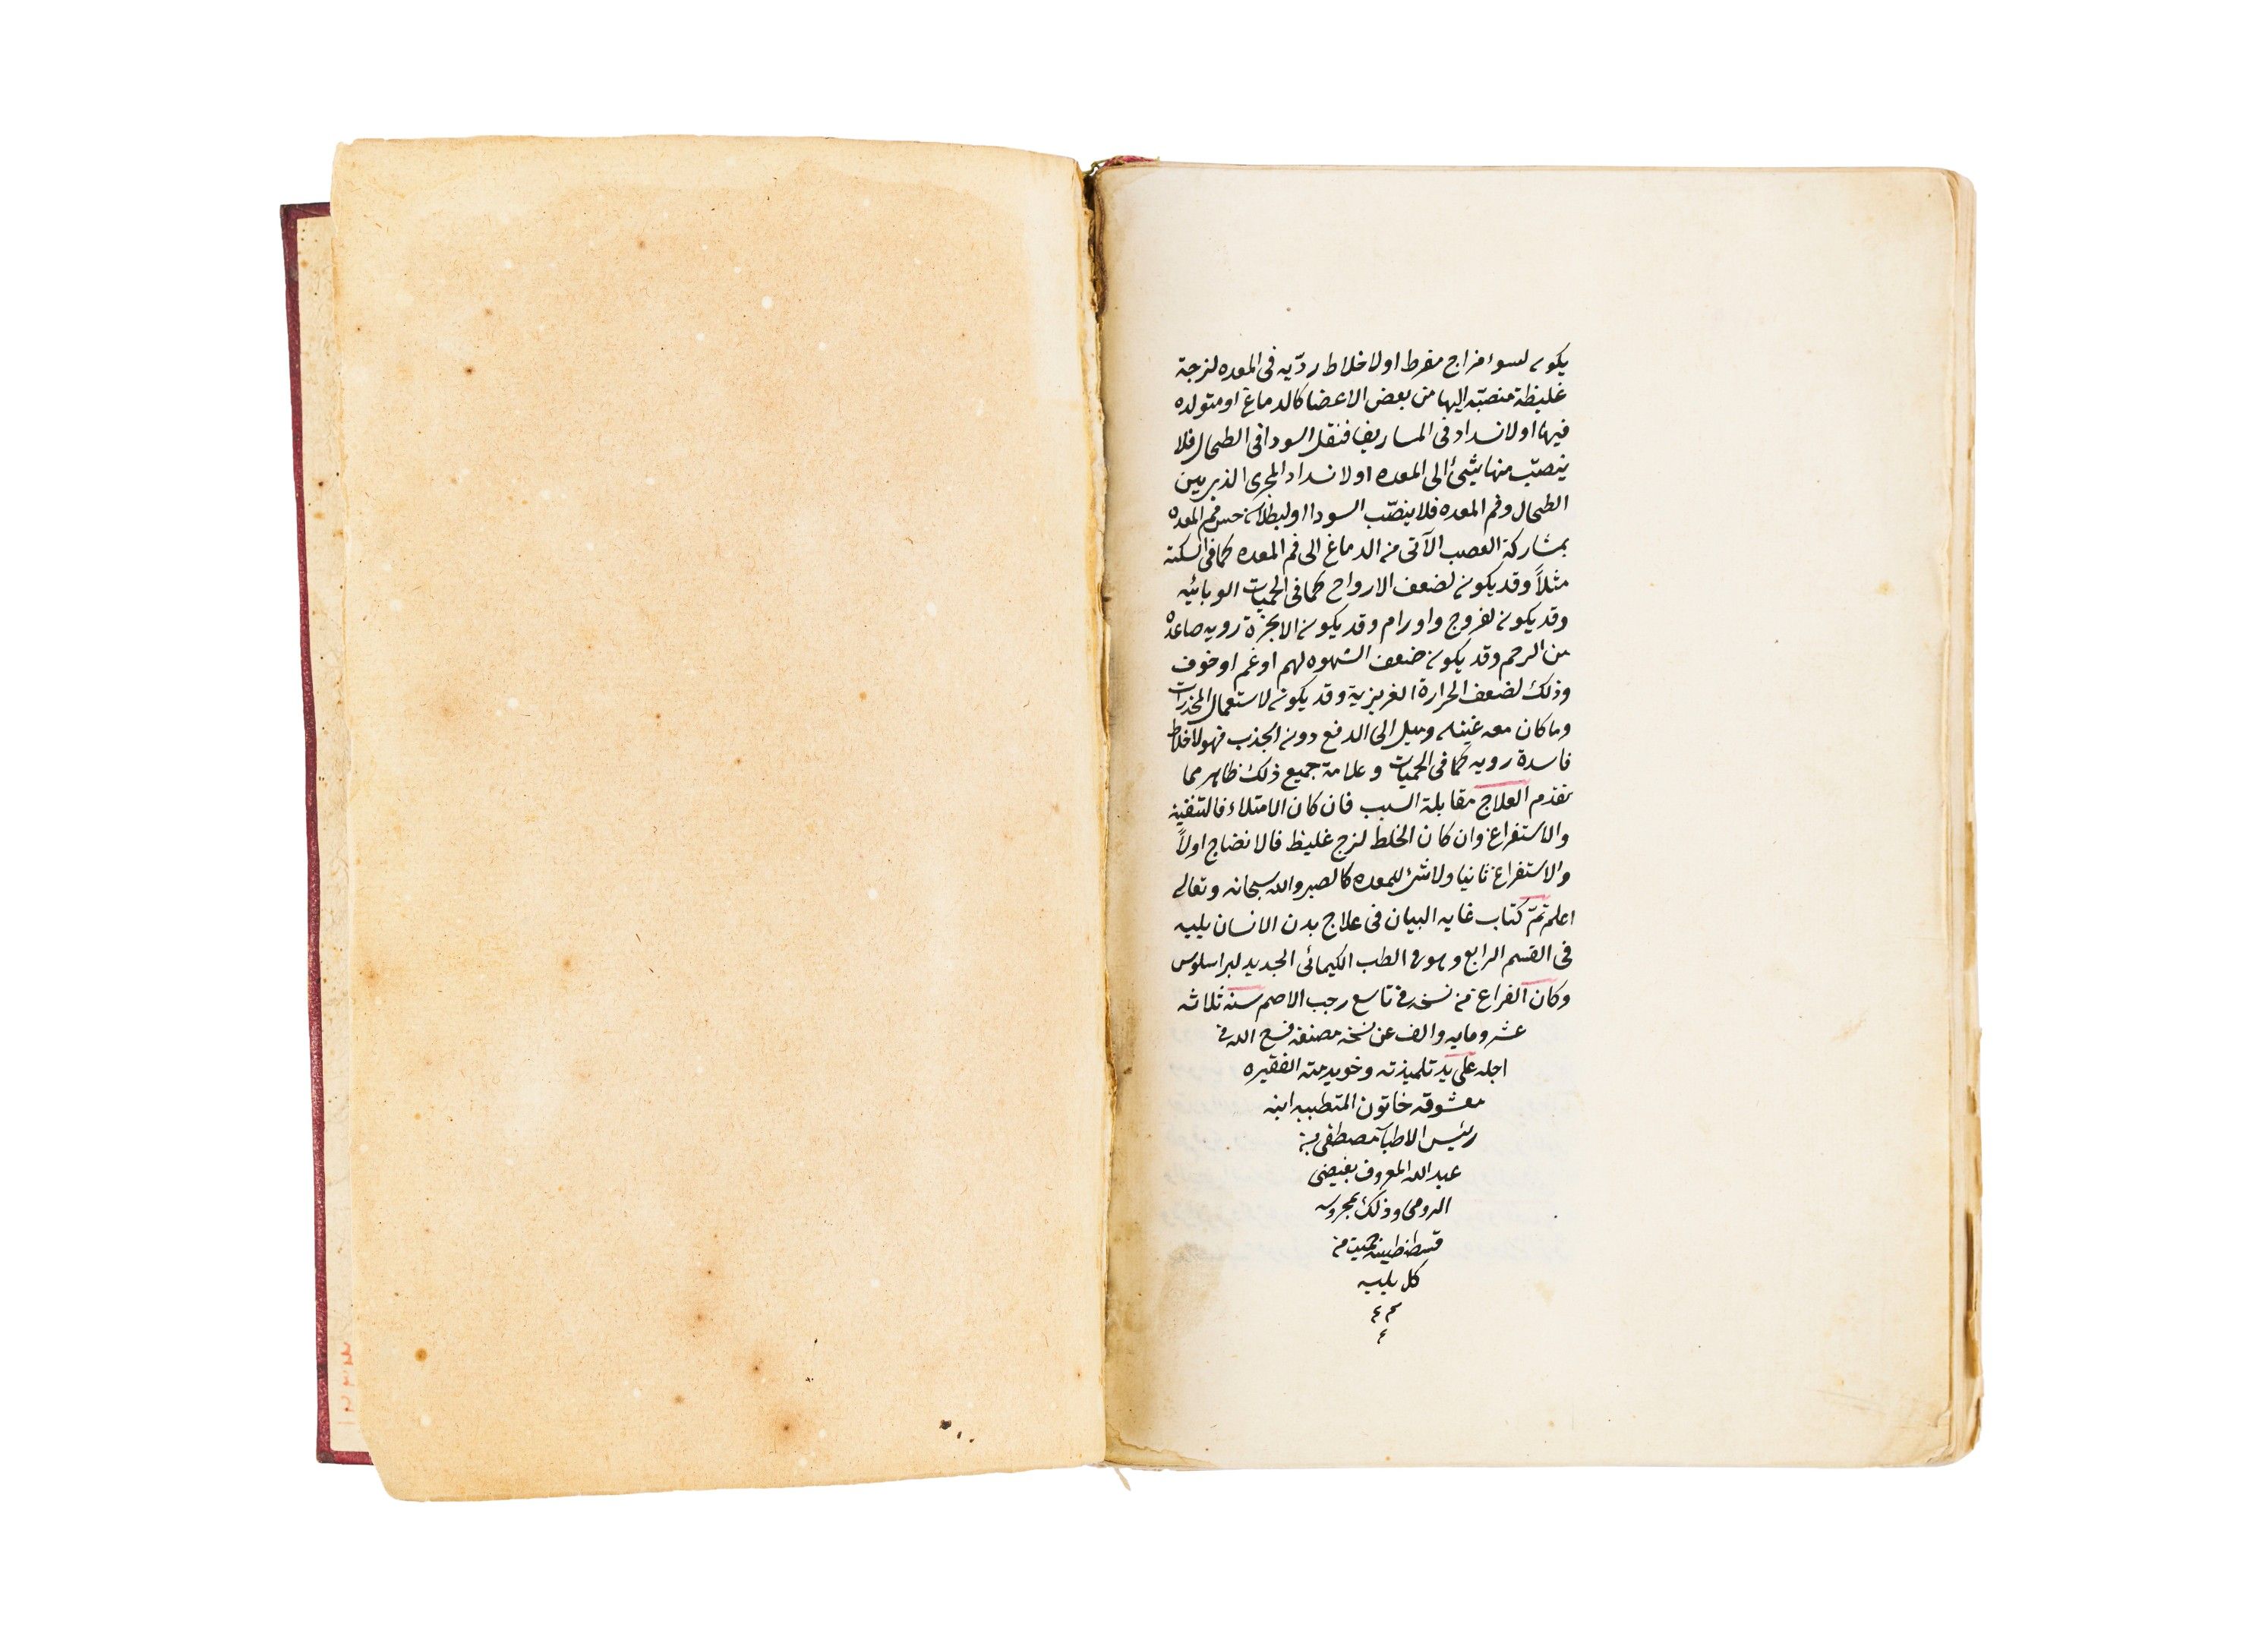 يكون لسوء مزاج مفرط او لاخلاط رديّه فى المعده لزجة
غليظة منصبّه اليها من بعض الاعضا كالدماغ او متولده
فيها او لانسداد فى المساريقا فنقل السودا فى الطحال فلا
ينصبّ منها شئ الى المعده او لانسداد المجرى الذى بين
الطحال وفم المعده فلا ينصّب السودا او لبطلان حس فم المعده
بمشاركة العصب الآتى من الدماغ الى فم المعده كما فى السكته
مثلاً وقد يكون لضعف الارواح كما فى الحميات الوبائيه
وقد يكون لقروح واورام وقد يكون لابخرة رديه صاعده
من الرحم وقد يكون ضعف الشهوه لهم او غم او خوف
وذلك لضعف الحرارة الغريزية وقد يكون لاستعمال المخدرات
وما كان معه وميل الى الدفع دون الجذب فهو لاخلاط
فاسدة رديه كما فى الحميات وعلامة جميع ذلك ظاهر مما
تقدم العلاج مقابلة السبب فان كان الامتلاء فالتنقيه
والاستفراغ وان كان الخلط لزج غليظ فالانضاج اولاً
والاستفراغ ثانيا ولا شئ للمعده كالصبر والله سبحانه وتعالى
اعلم تمّ كتاب غايه البيان فى علاج بدن الانسان يليه
فى القسم الرابع وهو فى الطب الكيمائى الجديد لبراسلوس
وكان الفراغ من نسخه فى تاسع رجب الاصم سنه ثلاثه
عشر ومايه والف عن نسخة مصنفه فسح الله فى
اجله على يد تلميذته وخويدمته الفقيره
معشوقه خاتون المتطببه ابنه
رئيس الاطبآ مصطفى بن
عبد الله المعروف بفيضى
الرومى وذلك بمحروسه
قسطنطينيه حميت من
كل بليه